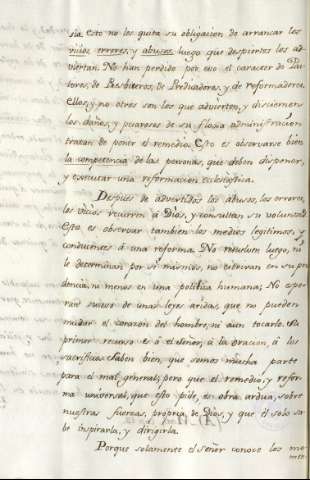 sia esto no les quita su obligacion de arrancar los
vicios errores, y abusos luego que despiertos los ad
viertan. No han perdido por eso el caracter de Pas
tores, de Presbiteros, de Predicadores, y de reformadores
Ellos, y no otros son los que advierten, y disciernen
los daños, y pesarosos de su floxa administracion
tratan de poner el remedio. Esto es observarse bien
la competencia de las personas, que deben disponer,
y executar una reformacion eclesiastica.
Despues de advertidos los abusos, los errores,
los vicios recurren à Dios, y consultan su voluntad
Esto es observar tambien los medios legitimos, y
conducentes á una reforma. No resuelven luego, ni
lo determinan por sí mismos, no estrivan en su pru
dencia, ni menos en una politica humana; No espe
ran suceso de unas leyes aridas, que no pueden
mudar el corazon del hombre, ni aun tocarlo. Su
primer recurso es á el Señor, á la oracion, á los
sacrificios. Saben bien, que somos mucha parte
para el mal general; pero que el remedio, y refor
ma universal, que esto pide, es obra ardua, sobre
nuestras fuerzas, propria de Dios, y que él solo sa
be inspirarla, y dirigirla.
Porque solamente el Señor conoce los mo